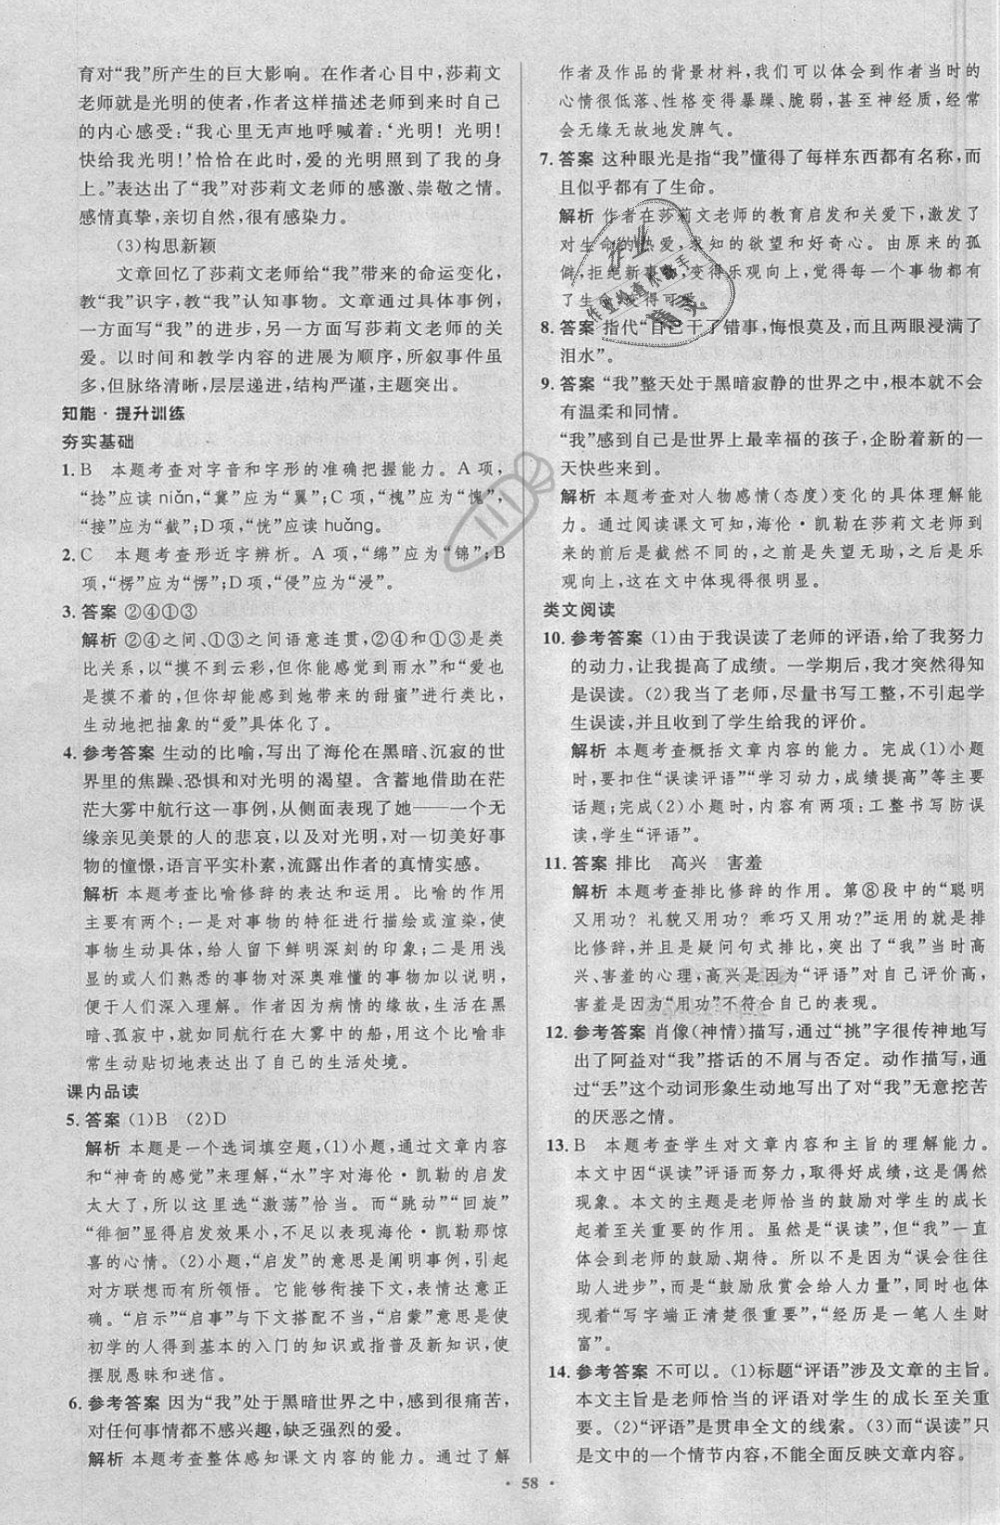 育对“我”所产生的巨大影响。在作者心目中,莎莉文
老师就是光明的使者,作者这样描述老师到来时自己
的内心感受:“我心里无声地呼喊着:‘光明! 光明!
快给我光明!’恰恰在此时,爱的光明照到了我的身
上。”表达出了“我”对莎莉文老师的感激、崇敬之情。
感情真挚,亲切自然,很有感染力。
(3)构思新颖
文章回忆了莎莉文老师给“我”带来的命运变化,
教“我”识字,教“我”认知事物。文章通过具体事例,
一方面写“我”的进步,另一方面写莎莉文老师的关
爱。以时间和教学内容的进展为顺序,所叙事件虽
多,但脉络清晰,层层递进,结构严谨,主题突出。
知能·提升训练
夯实基础
1. B 本题考查对字音和字形的准确把握能力。A 项,
“捻”应读 niǎn,“冀”应为“翼”;C 项,“槐”应为“愧”,
“接”应为“截”;D 项,“恍”应读 huǎng。
2. C 本题考查形近字辨析。A 项,“绵”应为“锦”;B
项,“楞”应为“愣”;D 项,“侵”应为“浸”。
3. 答案 ②④①③
解析 ②④之间、①③之间语意连贯,②④和①③是类
比关系,以“摸不到云彩,但你却能感到雨水”和“爱也
是摸不着的,但你却能感到她带来的甜蜜”进行类比,
生动地把抽象的“爱”具体化了。
4. 参考答案 生动的比喻,写出了海伦在黑暗、沉寂的世
界里的焦躁、恐惧和对光明的渴望。含蓄地借助在茫
茫大雾中航行这一事例,从侧面表现了她——一个无
缘亲见美景的人的悲哀,以及对光明,对一切美好事
物的憧憬,语言平实朴素,流露出作者的真情实感。
解析 本题考查比喻修辞的表达和运用。比喻的作用
主要有两个:一是对事物的特征进行描绘或渲染,使
事物生动具体,给人留下鲜明深刻的印象;二是用浅
显的或人们熟悉的事物对深奥难懂的事物加以说明,
便于人们深入理解。作者因为病情的缘故,生活在黑
暗、孤寂之中,如同航行在大雾中的船,用这个比喻非
常生动贴切地表达出了自己的生活处境。
课内品读
5. 答案 (1)B (2)D
解析 本题是一个选词填空题,(1)小题,通过文章内容
和“神奇的感觉”来理解,“水”字对海伦·凯勒的启发
太大了,所以这里选“激荡”恰当。而“跳动”“回旋”
“徘徊”显得启发效果小,不足以表现海伦·凯勒那惊
喜的心情。(2)小题,“启发”的意思是阐明事例,引起
对方联想而有所领悟。它能够简练、通达,表情达意正
确。“启示”“启事”与下文搭配不当,“启蒙”意思是使
初学的人得到基本的入门的知识或指普及新知识使
摆脱愚昧和迷信。
6. 参考答案 因为“我”处于黑暗世界之中,感到很痛苦,
对任何事情都不感兴趣,缺乏强烈的爱。
解析 本题考查整体感知课文内容的能力。通过了解
作者及作品的背景材料,我们可以体会到作者当时的
心情很低落、性格变得暴躁、脆弱,甚至神经质,经常
会无缘无故地发脾气。
7. 答案 这种眼光是指“我”懂得了每样东西都有名称,而
且似乎都有了生命。
解析 作者在莎莉文老师的教育启发和关爱下,激发了
对生命的热爱,求知的欲望和好奇心。由原来的孤
僻,拒绝新事物,变得乐观向上,觉得每一个事物都有
了生命,变得可爱。
8. 答案 指代“自己干了错事,悔恨莫及,而且两眼浸满了
泪水”。
9. 答案 “我”整天处于黑暗寂静的世界之中,根本就不会
有温柔和同情。
“我”感到自己是世界上最幸福的孩子,企盼着新的一
天快些来到。
解析 本题考查对人物感情(态度)变化的具体理解能
力。通过阅读课文可知,海伦·凯勒在莎莉文老师到
来的前后是截然不同的,之前是失望无助,之后是乐
观向上,这在文中体现得很明显。
类文阅读
10. 参考答案 (1)由于我误读了老师的评语,给了我努力
的动力,让我提高了成绩。一学期后,我才突然得知
是误读。(2)我当了老师,尽量书写工整,不引起学
生误读,并且收到了学生给我的评价。
解析 本题考查概括文章内容的能力。完成(1)小题
时,要扣住“误读评语”“学习动力,成绩提高”等主要
话题;完成(2)小题时,内容有两项:工整书写防误
读,学生“评语”。
11. 答案 排比 高兴 害羞
解析 本题考查排比修辞的作用。第⑧段中的“聪明
又用功? 礼貌又用功? 乖巧又用功?”运用的就是排
比修辞,并且是疑问句式排比,突出了“我”当时高
兴、害羞的心理,高兴是因为“评语”对自己评价高,
害羞是因为“用功”不符合自己的表现。
12. 参考答案 肖像(神情)描写,通过“挑”字很传神地写
出了阿益对“我”搭话的不屑与否定。动作描写,通
过“丢”这个动词形象生动地写出了对“我”无意挖苦
的厌恶之情。
13. B 本题考查学生对文章内容和主旨的理解能力。
本文中因“误读”评语而努力,取得好成绩,这是偶然
现象。本文的主题是老师恰当的鼓励对学生的成长
起着至关重要的作用。虽然是“误读”,但“我”一直
体会到老师的鼓励、期待。所以不是因为“误会往往
助人进步”,而是“鼓励欣赏会给人力量”,同时也体
现着“写字端正清楚很重要”,“经历是一笔人生财
富”。
14. 参考答案 不可以。(1)标题“评语”涉及文章的主旨。
本文主旨是老师恰当的评语对学生的成长至关重
要。(2)“评语”是贯串全文的线索。(3)而“误读”只
是文中的一个情节内容,不能全面反映文章内容。
· 58 ·